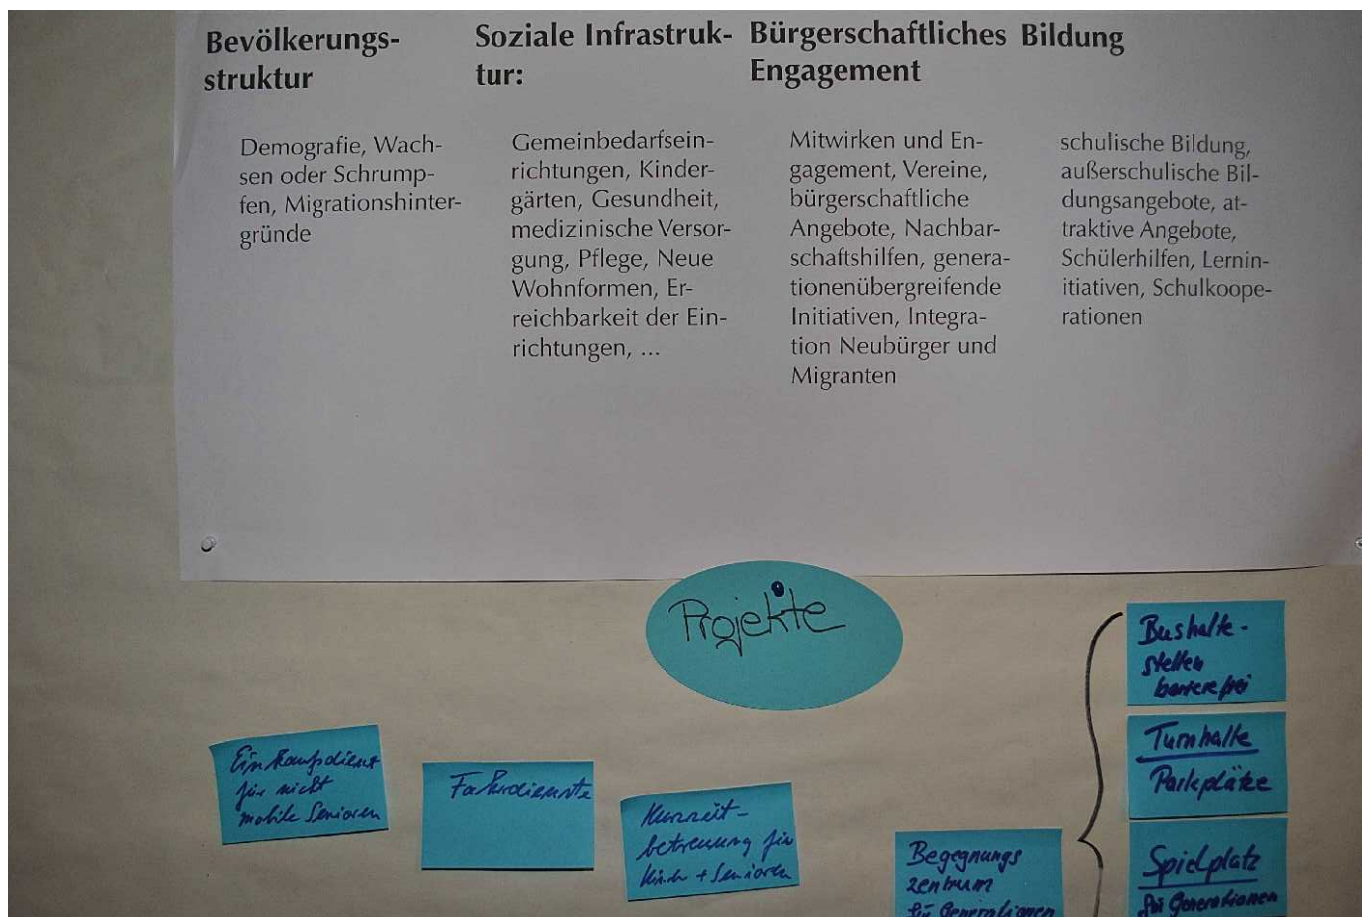 Bevölkerungs-
struktur
Demografie, Wach-
sen oder Schrump-
fen, Migrationshinter-
gründe
Soziale Infrastruk-
tur:
Gemeinbedarfsein-
richtungen, Kinder-
gärten, Gesundheit,
medizinische Versor-
gung, Pflege, Neue
Wohnformen, Er-
reichbarkeit der Ein-
richtungen, ...
Bürgerschaftliches
Engagement
Mitwirken und En-
gagement, Vereine,
bürgerschaftliche
Angebote, Nachbar-
schaftshilfen, genera-
tionenübergreifende
Initiativen, Integra-
tion Neubürger und
Migranten
Bildung
schulische Bildung,
außerschulische Bil-
dungsangebote, at-
traktive Angebote,
Schülerhilfen, Lernin-
itiativen, Schulkoope-
rationen
Projekte
Einkaufsdienst
für nicht
mobile Senioren
Fahrdienste
Kurzzeit-
betreuung für
Kinder + Senioren
Begegnungs
zentrum
für Generationen
Bushalte-
stellen
barrierefrei
Turnhalle
Parkplätze
Spielplatz
für Generationen